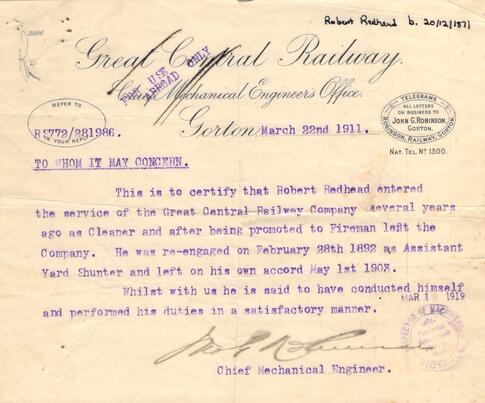 Robert Redhead b. 20/12/1871
Great Central Railway.
FOR USE
ABROAD ONLY
Chief Mechanical Engineer's Office,
Gorton, March 22nd 1911.
REFER TO
IN YOUR REPLY
RS772/281986.
TELEGRAMS
ALL LETTERS
ON BUSINESS TO
JOHN G. ROBINSON,
GORTON.
ROBINSON, RAILWAY, GORTON.
NAT. TEL. No 1300.
TO WHOM IT MAY CONCERN.
This is to certify that Robert Redhead entered
the service of the Great Central Railway Company several years
ago as Cleaner and after being promoted to Fireman left the
Company. He was re-engaged on February 28th 1892 as Assistant
Yard Shunter and left on his own accord May 1st 1903.
Whilst with us he is said to have conducted himself
and performed his duties in a satisfactory manner.
MAR 18 1919
Jno G Robinson
Chief Mechanical Engineer.